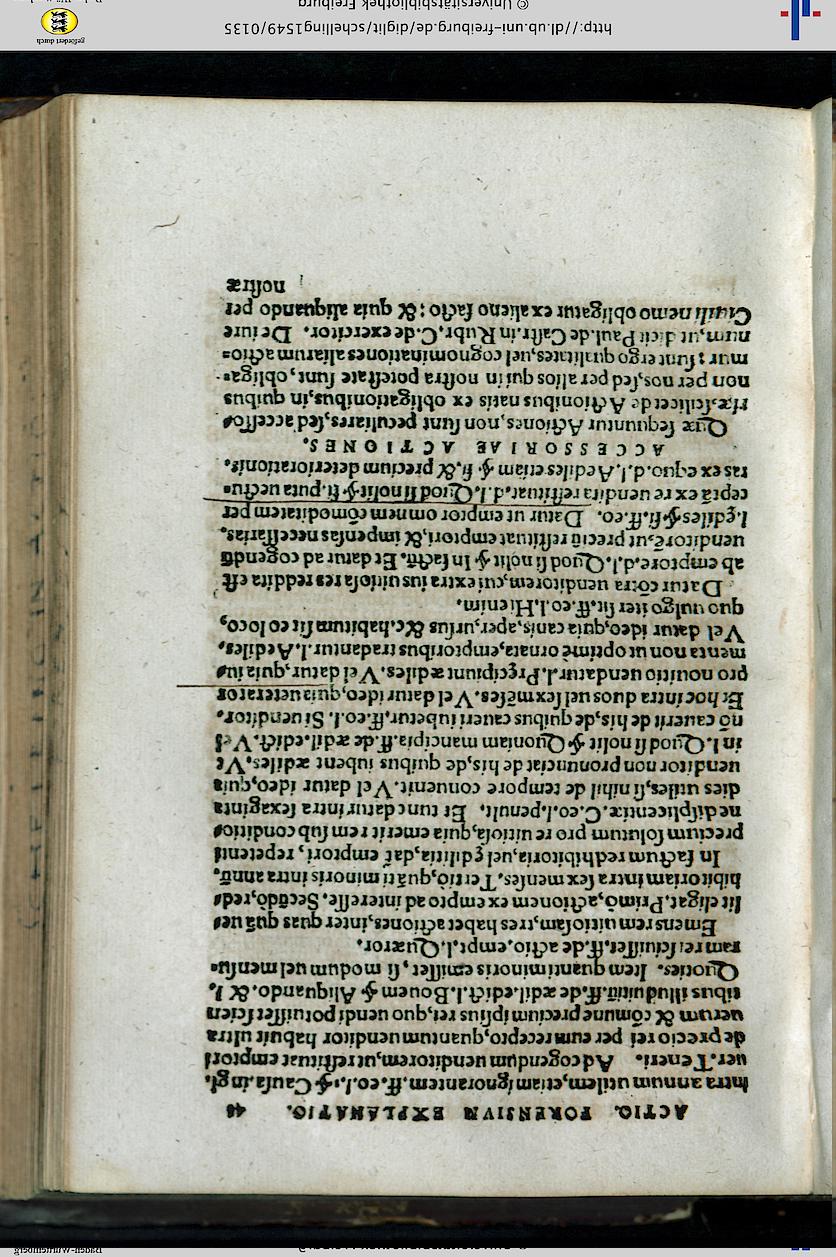 ACTIO. FORENSIVM EXPLANATIO. 48
intra annum utilem, etiam ignorantem. ff. eo. l. 1. § Causa in gl.
uer. Teneri. Ad cogendum uenditorem, ut restituat emptori
de precio rei per eum recepto, quantum uenditor habuit ultra
uerum & cōmune precium ipsius rei, quo uendi potuisset scien
tibus illud uitiū. ff. de ædil. edict. l. Bouem § Aliquando. & l.
Quoties. Item quanti minoris emisset, si modum uel mensu=
ram rei sciuisset. ff. de actio. empt. l. Quæror.
Emens rem uitiosam, tres habet actiones, inter quas quā ue=
lit eligat. Primò, actionem ex empto ad interesse. Secūdò, red=
hibitoriam intra sex menses. Tertiò, quāti minoris intra annū.
In factum redhibitoria, uel ędilitia, dat emptori, repetenti
precium solutum pro re uitiosa, quia emerit rem sub conditio=
ne displicentiæ. C. eo. l. penult. Et tunc datur intra sexaginta
dies utiles, si nihil de tempore conuenit. Vel datur ideo, quia
uenditor non pronunciat de his, de quibus iubent ædiles. Vt
in l. Quod si nolit § Quoniam mancipia. ff. de ædil. edict. Vel
nō cauerit de his, de quibus caueri iubetur. ff. eo. l. Si uenditor.
Et hoc intra duos uel sex mēses. Vel datur ideo, quia ueterator
pro nouitio uendatur. l. Pręcipiunt ædiles. Vel datur, quia iu=
menta non ut optimè ornata, emptoribus tradantur. l. Aediles.
Vel datur ideo, quia canis, aper, ursus &c. habitum sit eo loco,
quo uulgo iter fit. ff. eo. l. Hi enim.
Datur cōtra uenditorem, cui extra ius uitiosa res reddita est
ab emptore. d. l. Quod si nolit § In factū. Et datur ad cogendū
uenditorē, ut preciū restituat emptori, & impensas necessarias.
l. ędiles § fi. ff. eo. Datur ut emptor omnem cōmoditatem per
ceptā ex re uendita restituat. d. l. Quod si nolit § fi. puta uectu=
ras ex equo. d. l. Aediles etiam § fi. & precium deteriorationis.
ACCESSORIAE ACTIONES.
Quæ sequuntur Actiones, non sunt peculiares, sed accesso=
riæ. scilicet de Actionibus natis ex obligationibus, in quibus
non per nos, sed per alios qui in nostra potestate sunt, obliga=
mur: sunt ergo qualitates, uel cognominationes aliarum actio=
num, ut dicit Paul. de Castr. in Rubr. C. de exercitor. De iure
Ciuili nemo obligatur ex alieno facto: & quia aliquando per
nostræ
http://dl.ub.uni-freiburg.de/diglit/schelling1549/0135
© Universitätsbibliothek Freiburg
gefördert durch